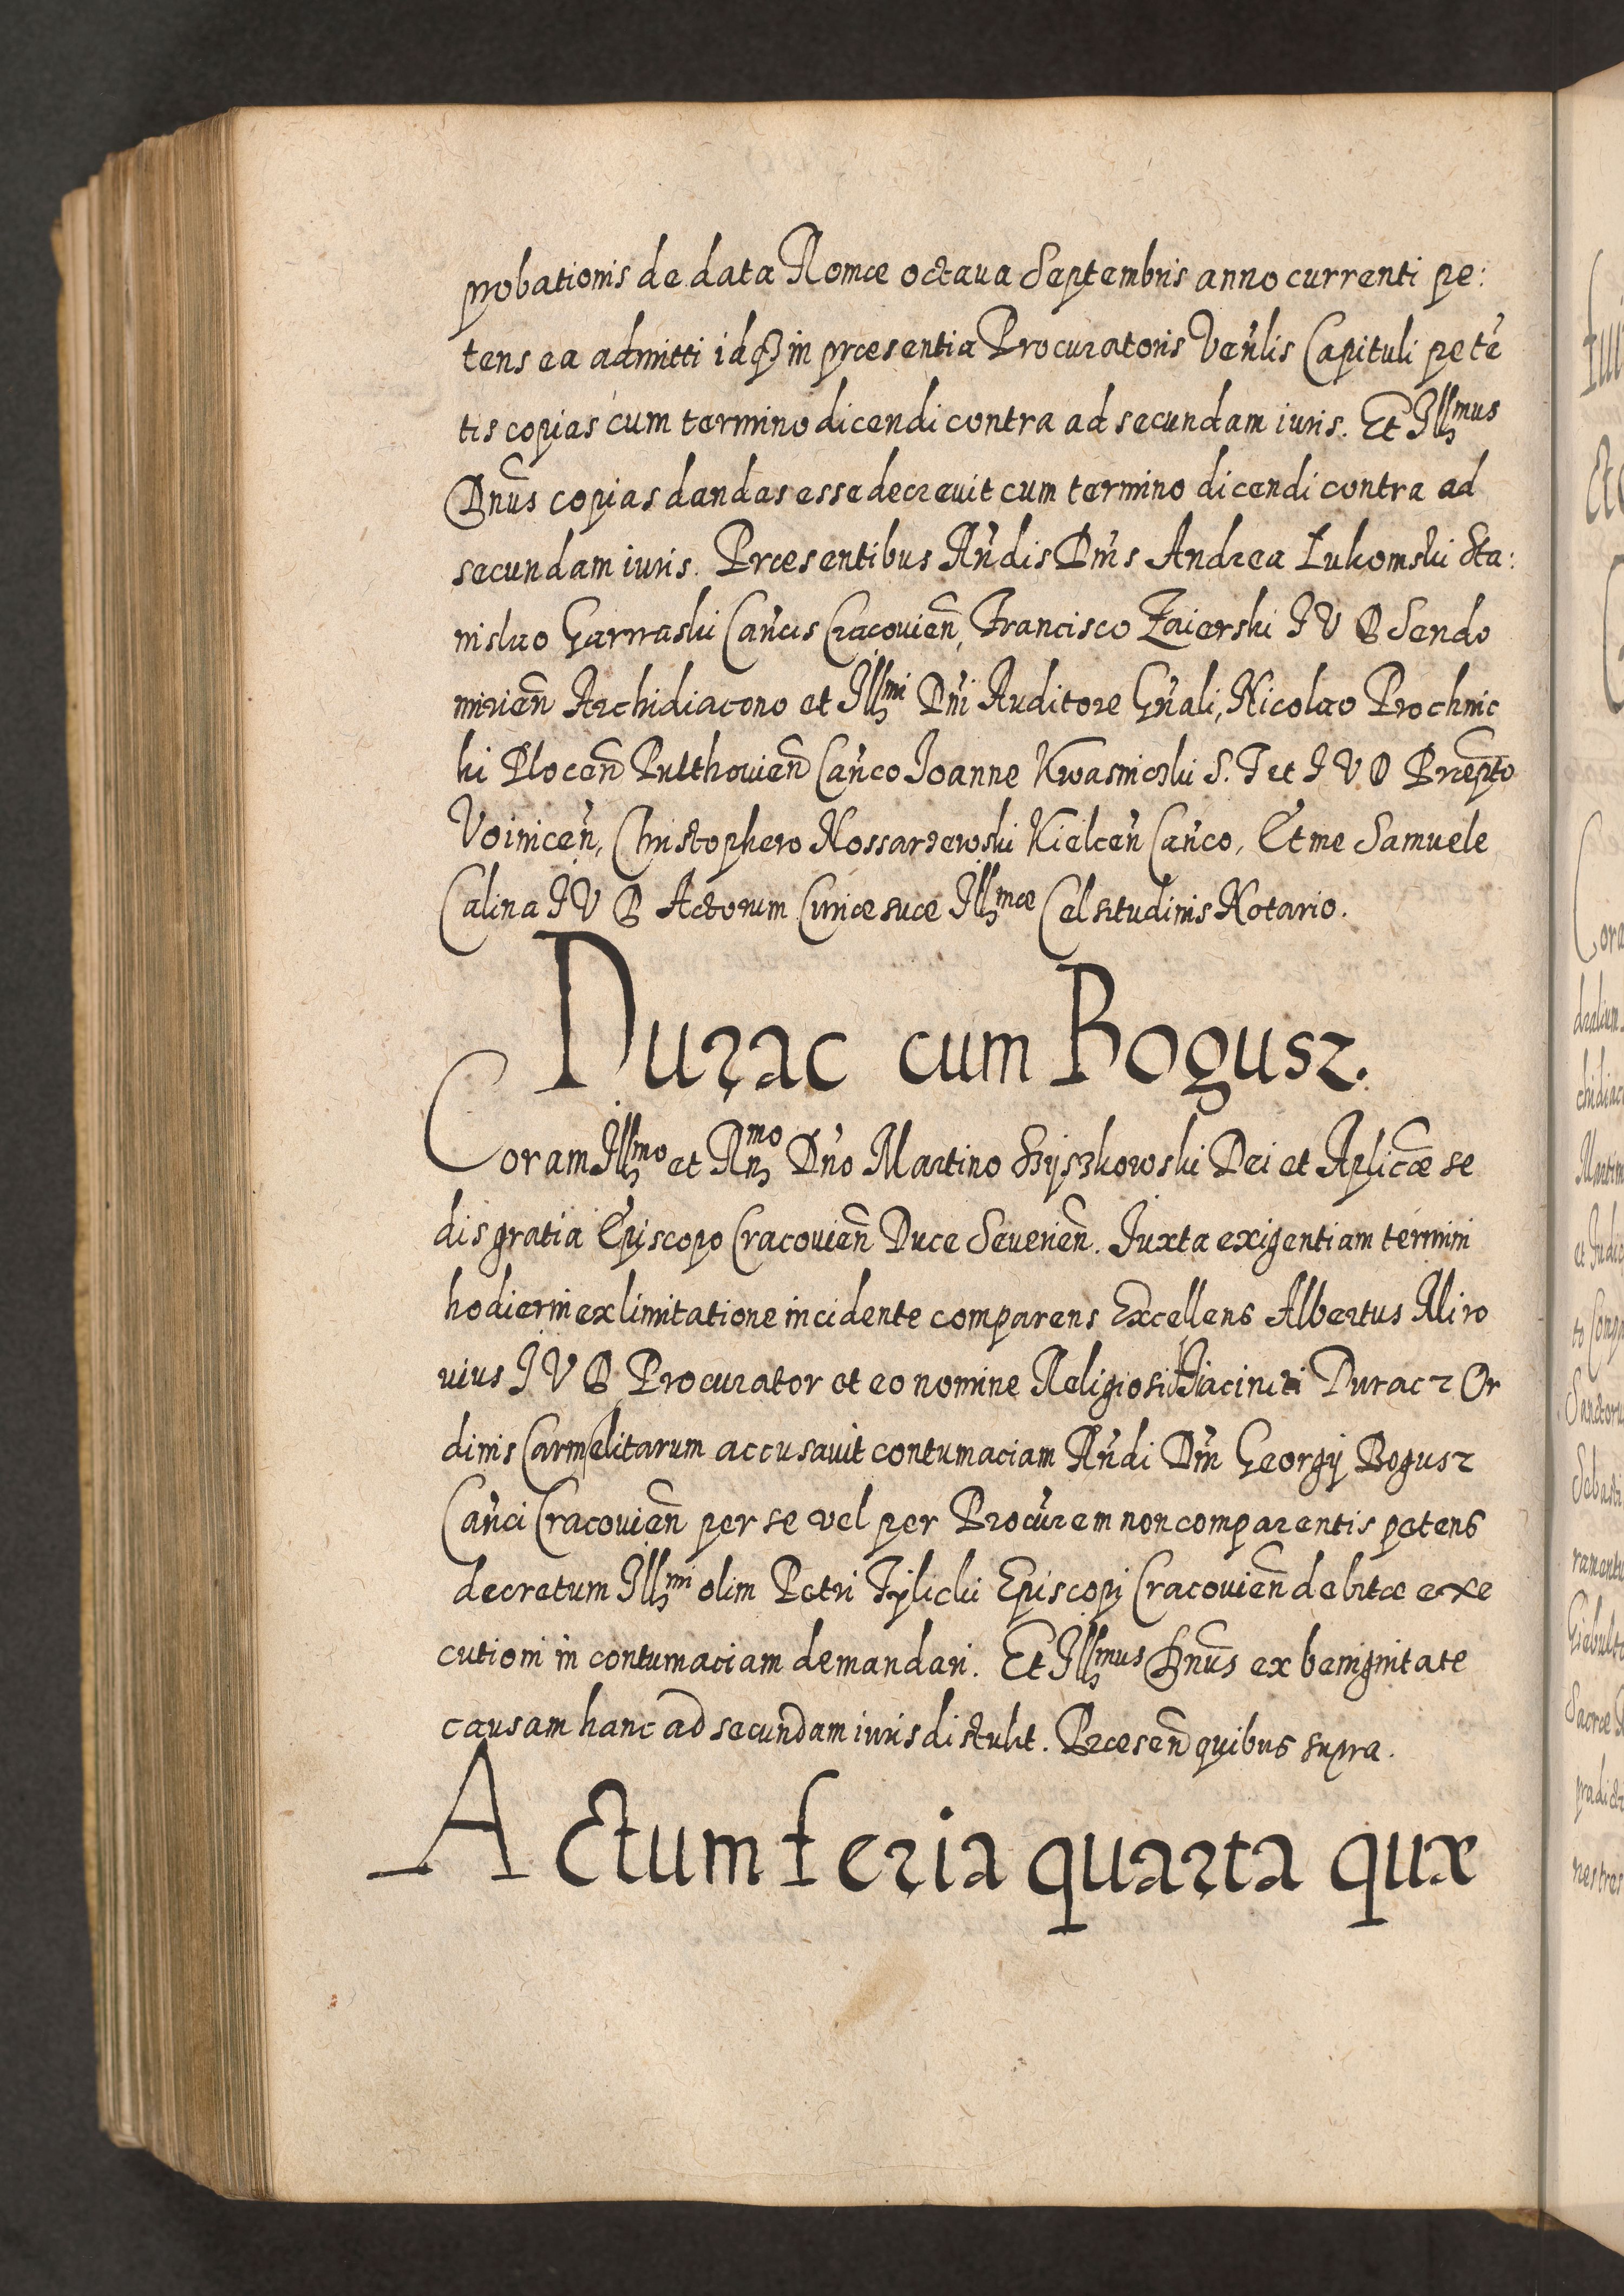 probationis de data Romæ octaua Septembris anno currenti pe:
tens ea admitti idq3 in præsentia Procuratoris Veñlis Capituli petē
tis copias cum termino dicendi contra ad secundam iuris. Et Illmus
Dnūs copias dandas esse decreuit cum termino dicendi contra ad
secundam iuris. Præsentibus Rñdis Dnīs Andrea Łukomski Sta:
nislao Garwaski Cañcis Cracovieñ, Francisco Zaierski I V D Sendo
mirieñ Archidiacono et Illmi Dñi Auditore Gñali, Nicolao Prochnic
ki Ploceñ Pulthovieñ Cañco Ioanne Kwasnicżki S. T et I V D Præpto
Voiniceñ, Christophero Kossarzewski Kielceñ Cañco, Et me Samuele
Calina I V D Actorum Curiæ suæ Illmæ Celsitudinis Notario.
Durac cum Bogusz.
Coram Illmo et Rnmo Dño Martino Szyszkowski Dei et Aplicæ se
dis gratia Episcopo Cracovieñ Duce Severieñ. Iuxta exigentiam termini
hodierni ex limitatione incidente comparens Excellens Albertus Miro
vius I V D Procurator et eo nomine Religiosi Hiacinti Duracz Or
dinis Carmelitarum accusavit contumaciam Rñdi Dñi Georgij Bogusz
Cañci Cracovieñ per se vel per Procūrem non comparentis petens
decretum Illmi olim Petri Tylicki Episcopi Cracovieñ debitæ exe
cutioni in contumaciam demandari. Et Illmus Dnūs ex benignitate
causam hanc ad secundam iuris distulit. Præseñ quibus supra.
Actum feria quarta quæ